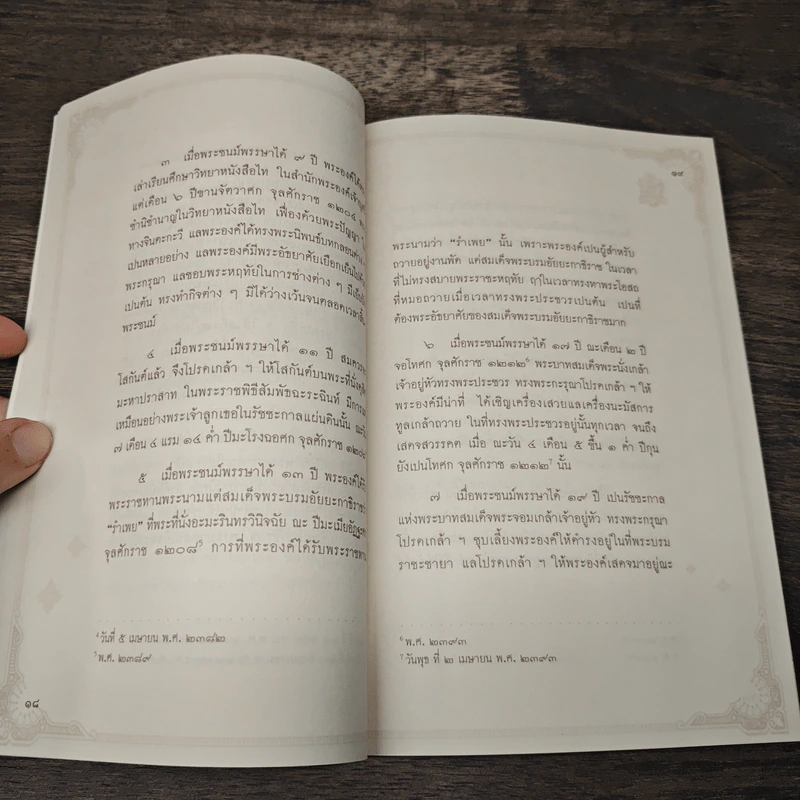 ๓ เมื่อพระชนม์พรรษาได้ ๙ ปี พระองค์ได้
เล่าเรียนศึกษาวิทยาหนังสือไท ในสำนักพระองค์เจ้า
แต่เดือน ๖ ปีขานจัตวาศก จุลศักราช ๑๒๐๔
ชำนิชำนาญในวิทยาหนังสือไท เฟื่องด้วยพระปัญญา
ทางจินตะกะวี แลพระองค์ได้ทรงพระนิพนธ์บทกลอน
เปนหลายอย่าง แลพระองค์มีพระอัธยาศัยเยือกเย็น
พระกรุณา แลชอบพระหฤทัยในการช่างต่าง ๆ มี
เปนต้น ทรงทำกิจต่าง ๆ มิได้ว่างเว้นจนตลอดเวลา
พระชนม์
๔ เมื่อพระชนม์พรรษาได้ ๑๑ ปี
โสกันต์แล้ว จึงโปรดเกล้า ฯ ให้โสกันต์บนพระที่นั่ง
มะหาปราสาท ในพระราชพิธีสัมพัจฉะระฉินท์ มีการ
เหมือนอย่างพระเจ้าลูกเธอในรัชชะกาลแผ่นดินนั้น
๗ เดือน ๔ แรม ๑๔ ค่ำ ปีมะโรงฉอศก จุลศักราช
๕ เมื่อพระชนม์พรรษาได้ ๑๓ ปี พระองค์ได้
พระราชทานพระนามแต่สมเด็จพระบรมอัยยะกาธิราช
“รำเพย” ที่พระที่นั่งอะมะรินทรวินิจฉัย ณะ ปีมะเมีย
จุลศักราช ๑๒๐๘⁵ การที่พระองค์ได้รับพระราชทาน
⁴ วันที่ ๕ เมษายน พ.ศ. ๒๓๘๒
⁵ พ.ศ. ๒๓๘๙
๑๘
๑๙
พระนามว่า “รำเพย” นั้น เพราะพระองค์เปนผู้สำหรับ
ถวายอยู่งานพัด แต่สมเด็จพระบรมอัยยะกาธิราช ในเวลา
ที่ไม่ทรงสบายพระราชะหฤทัย ฤๅในเวลาทรงทาพระโอสถ
ที่หมอถวายเมื่อเวลาทรงพระประชวรเปนต้น เปนที่
ต้องพระอัธยาศัยของสมเด็จพระบรมอัยยะกาธิราชมาก
๖ เมื่อพระชนม์พรรษาได้ ๑๗ ปี ณะเดือน ๒ ปี
จอโทศก จุลศักราช ๑๒๑๒⁶ พระบาทสมเด็จพระนั่งเกล้า
เจ้าอยู่หัวทรงพระประชวร ทรงพระกะรุณาโปรดเกล้า ฯ ให้
พระองค์มีน่าที่ ได้เชิญเครื่องเสวยแลเครื่องนะมัสการ
ทูลเกล้าถวาย ในที่ทรงพระประชวรอยู่นั้นทุกเวลา จนถึง
เสดจสวรรคต เมื่อ ณะวัน ๔ เดือน ๕ ขึ้น ๑ ค่ำ ปีกุน
ยังเปนโทศก จุลศักราช ๑๒๑๒⁷ นั้น
๗ เมื่อพระชนม์พรรษาได้ ๑๙ ปี เปนรัชชะกาล
แห่งพระบาทสมเด็จพระจอมเกล้าเจ้าอยู่หัว ทรงพระกรุณา
โปรดเกล้า ฯ ชุบเลี้ยงพระองค์ให้ดำรงอยู่ในที่พระบรม
ราชะชายา แลโปรดเกล้า ฯ ให้พระองค์เสดจมาอยู่ณะ
⁶ พ.ศ. ๒๓๙๓
⁷ วันพุธ ที่ ๒ เมษายน พ.ศ. ๒๓๙๓